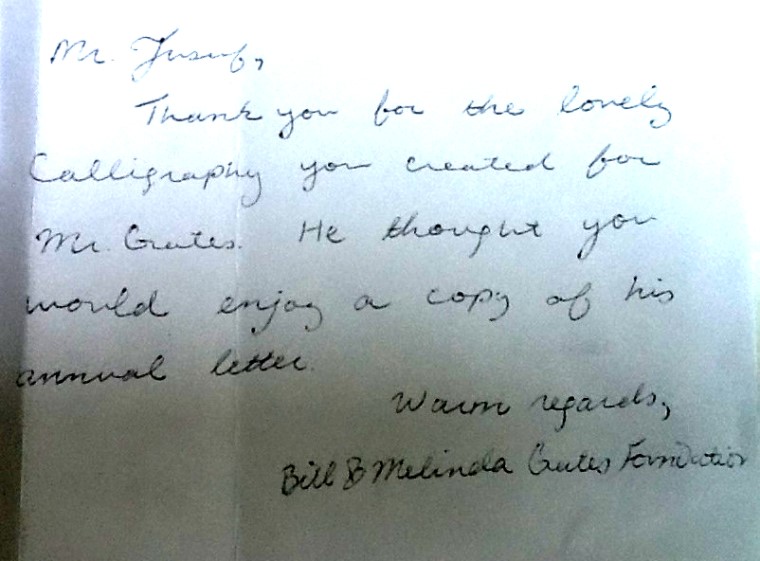 Mr. Yusuf,
Thank you for the lovely
Calligraphy you created for
Mr. Gates. He thought you
would enjoy a copy of his
annual letter.
Warm regards,
Bill & Melinda Gates Foundation